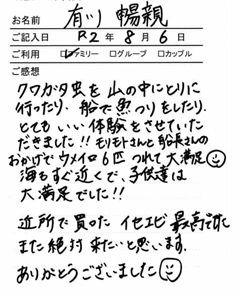 お名前 有川 暢親
ご記入日 R2年8月6日
ご利用 ☑ファミリー □グループ □カップル
ご感想
クワガタ虫を山の中にとりに
行ったり、船で魚つりをしたり、
とてもいい体験をさせていた
だきました!! モリモトさんと船長さんの
おかげでウメイロ6匹つれて大満足☺
海もすぐ近くで、子供達は
大満足でした!!
近所で買ったイセエビ最高です。
また絶対来たいと思います。
ありがとうございました☺